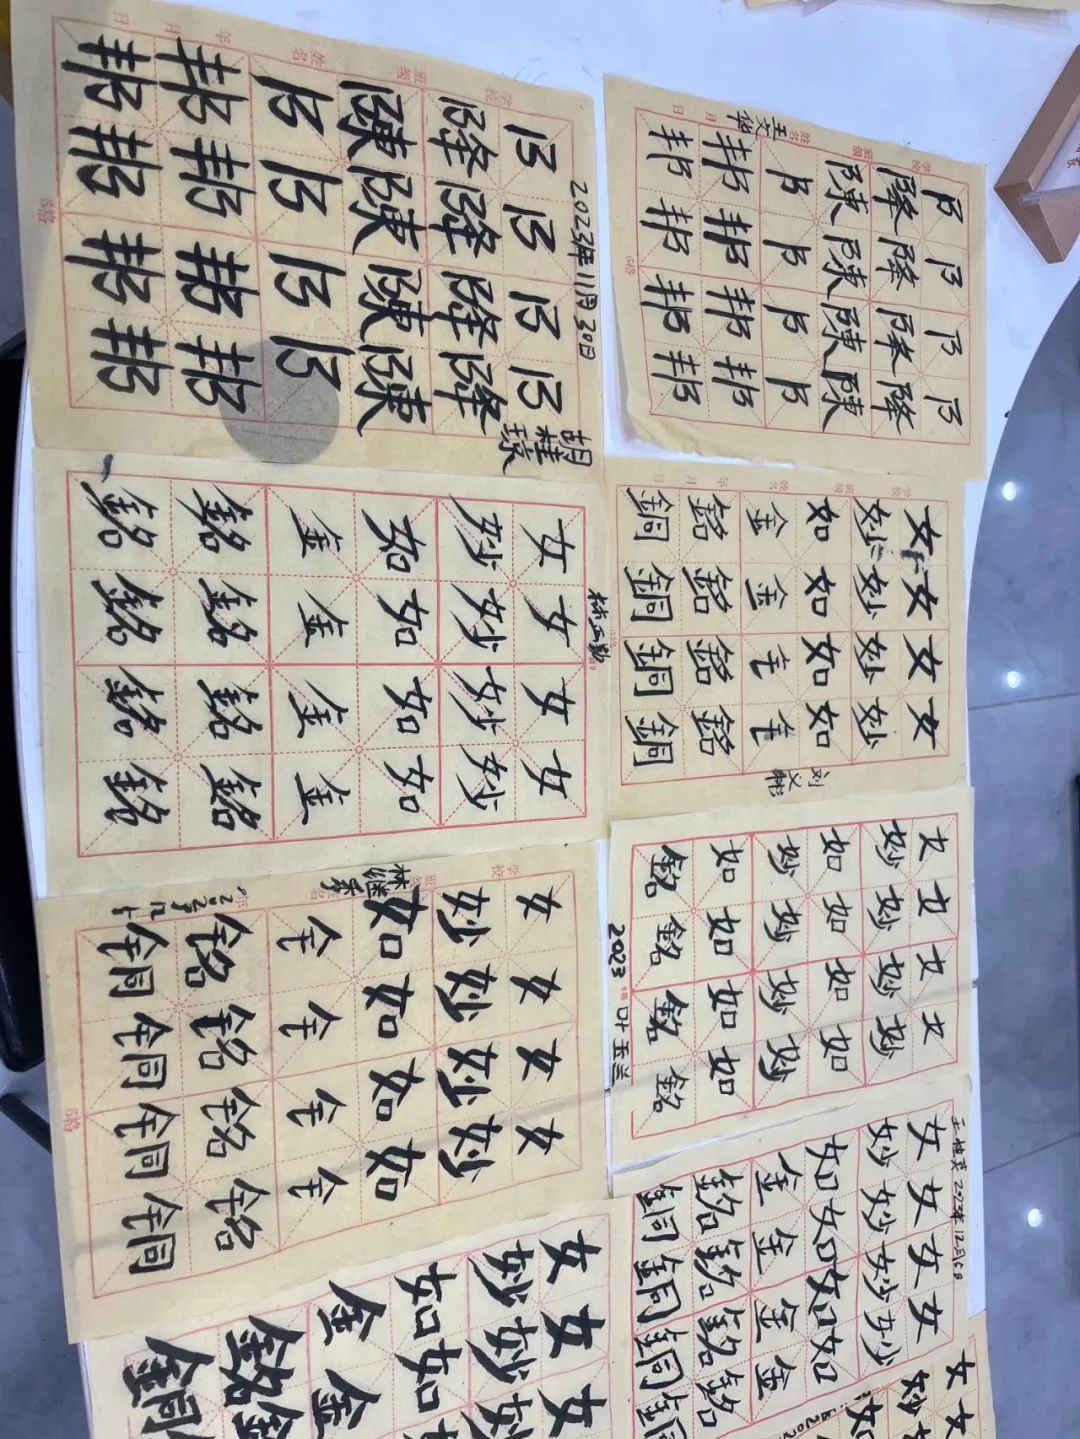 阝阝阝阝
降降降降
陳陳陳陳
阝阝阝阝
邦邦邦邦
邦邦邦邦
2023年11月30日
胡桂琼
学校
班级
姓名
年
月
日
6格
阝阝阝阝
降降降降
陳陳陳陳
阝阝阝阝
邦邦邦邦
邦邦邦邦
王文华
学校
班级
姓名
月
日
6格
女女女女
妙妙妙妙
如如如如
金金金金
銘銘銘銘
銘銘銘銘
女女女女
妙妙妙妙
如如如如
金金
銘銘銘銘
銅銅銅銅
学校
班级
姓名
年
月
日
女女女女
妙妙妙妙
如如如如
銘銘銘銘
銅銅銅銅
学校
6格
女女女女
妙妙妙妙
如如如如
妙妙妙妙
如如如如
銘銘銘銘
2023
叶玉兰
女女女女
妙妙妙妙
如如如如
金金金金
銘銘銘銘
銅銅銅銅
2023年12月
女女女
妙妙妙
如如
金金
銘銘
銅
女女
妙
如